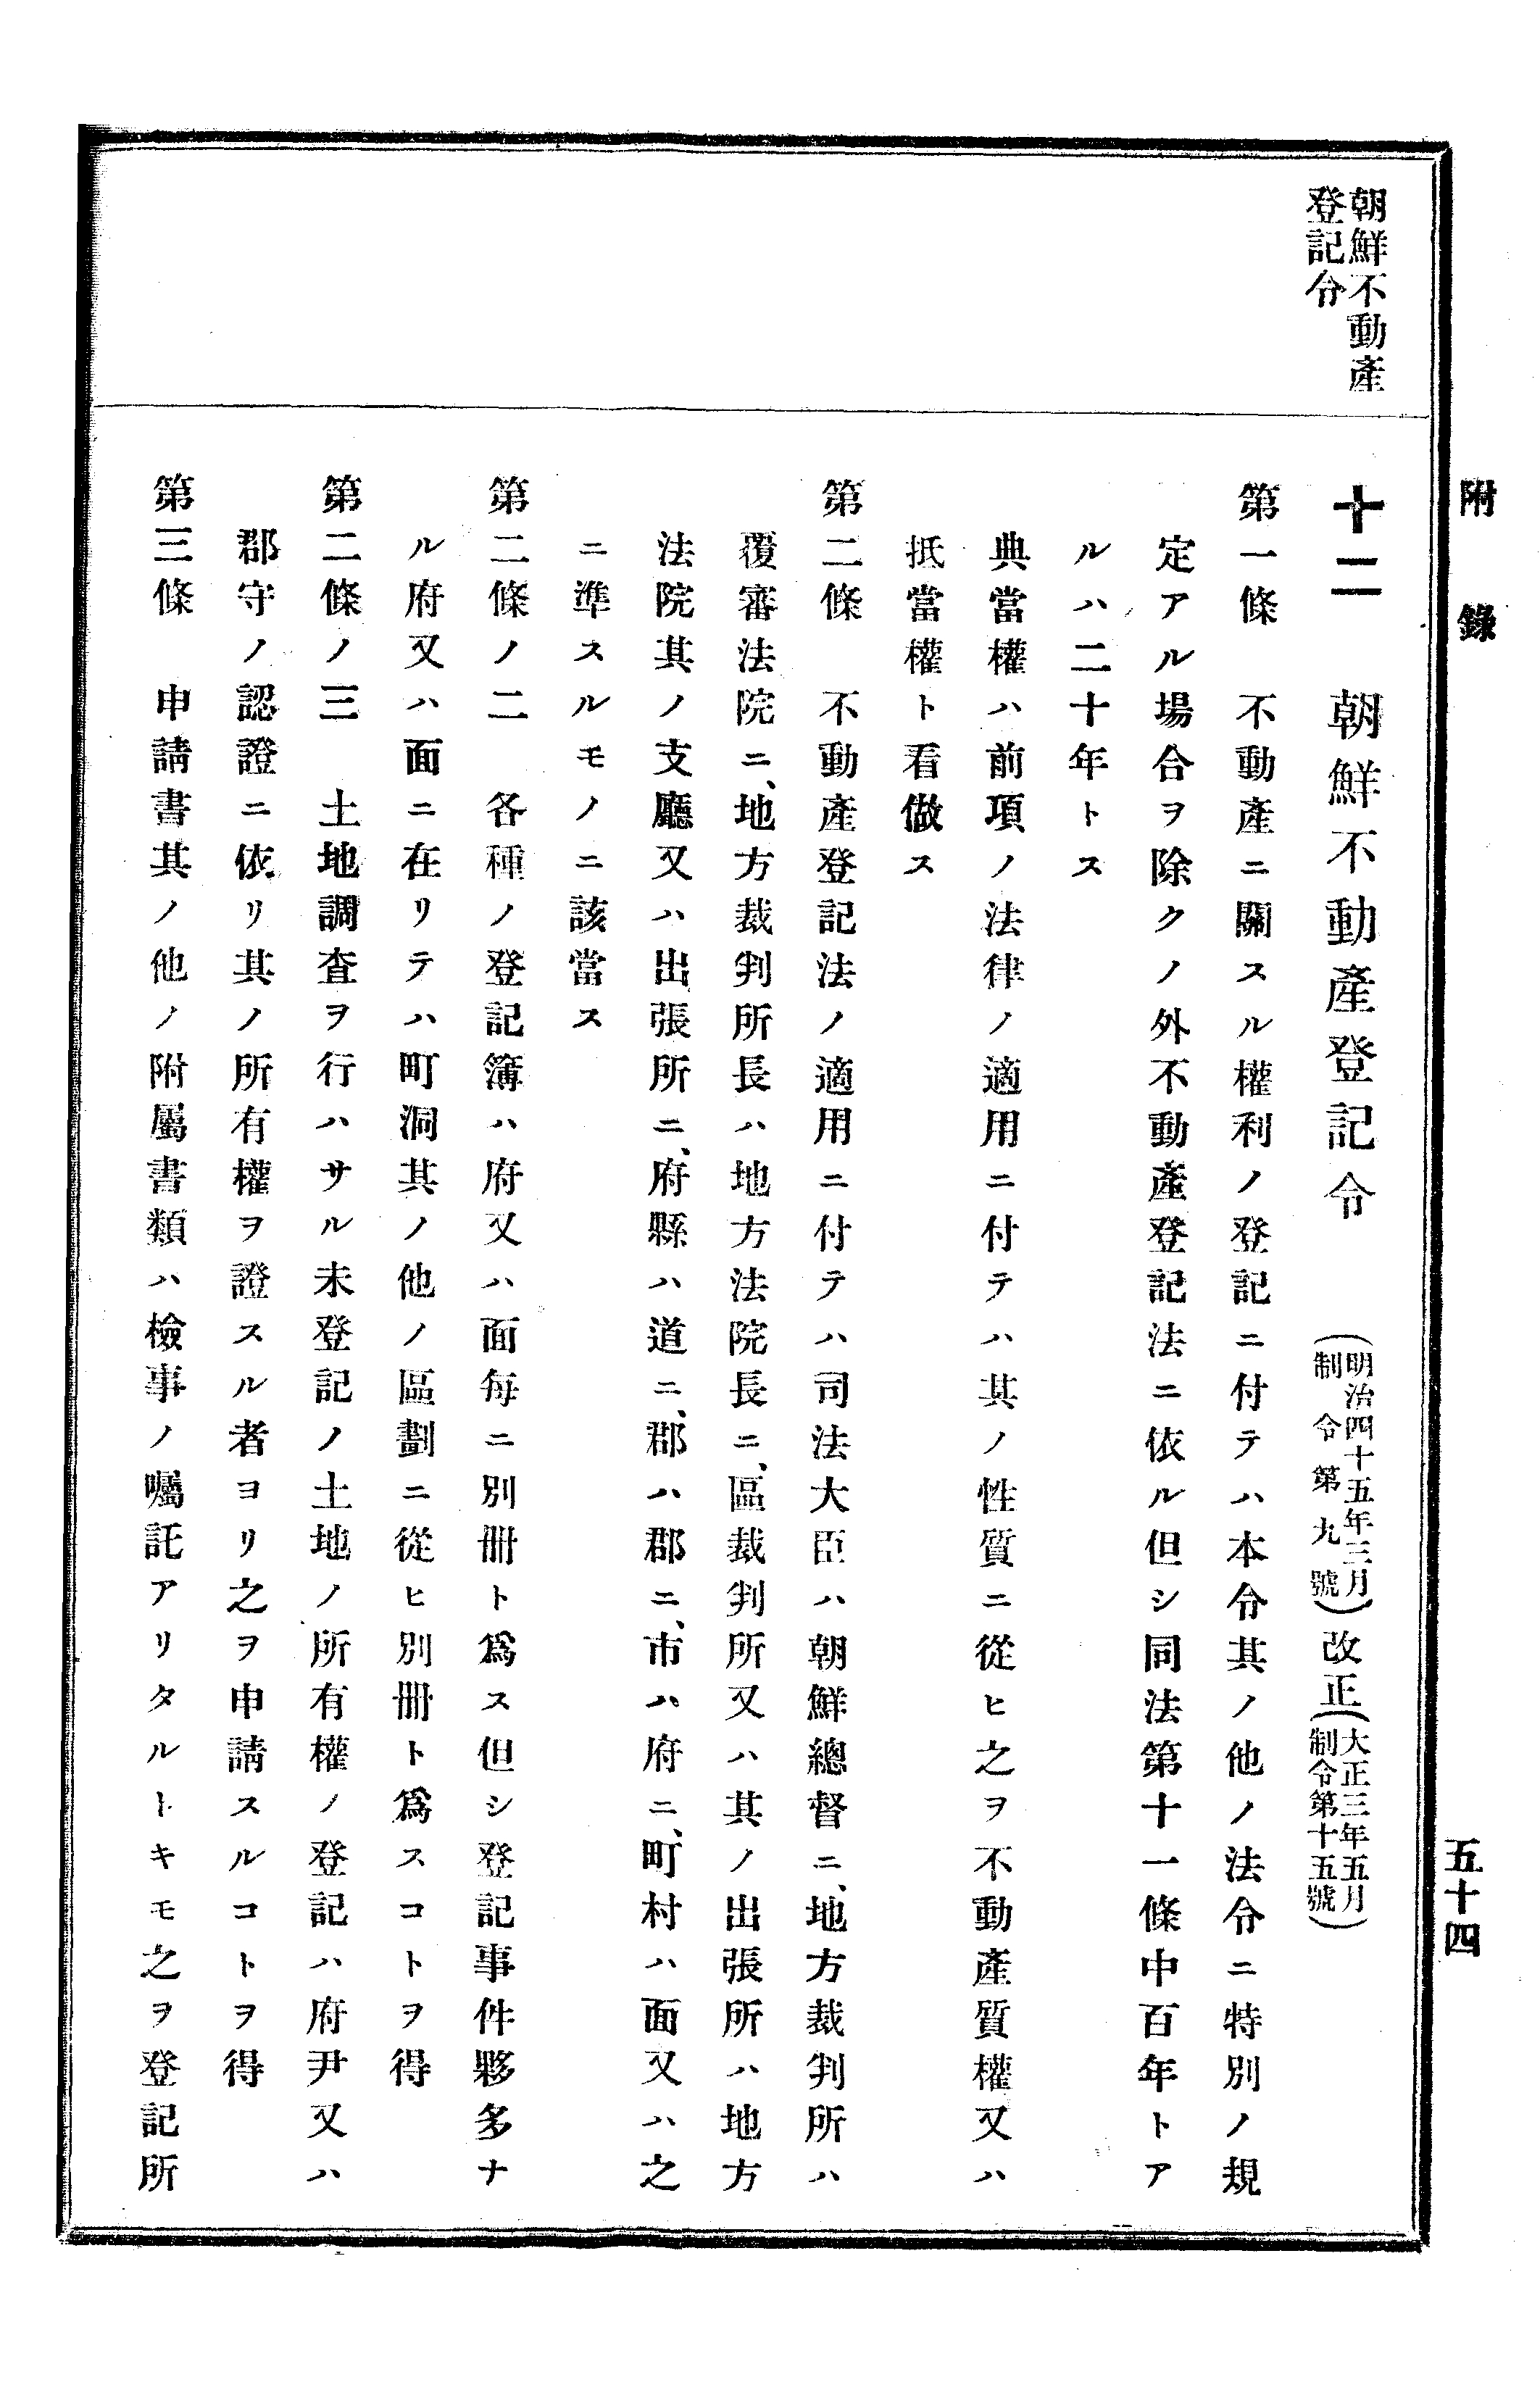 附錄
五十四
朝鮮不動產
登記令
十二 朝鮮不動產登記令 (明治四十五年三月制令第九號) 改正 (大正三年五月制令第十五號)
第一條 不動產ニ關スル權利ノ登記ニ付テハ本令其ノ他ノ法令ニ特別ノ規
定アル場合ヲ除クノ外不動產登記法ニ依ル但シ同法第十一條中百年トア
ルハ二十年トス
典當權ハ前項ノ法律ノ適用ニ付テハ其ノ性質ニ從ヒ之ヲ不動產質權又ハ
抵當權ト看做ス
第二條 不動產登記法ノ適用ニ付テハ司法大臣ハ朝鮮總督ニ、地方裁判所ハ
覆審法院ニ、地方裁判所長ハ地方法院長ニ、區裁判所又ハ其ノ出張所ハ地方
法院其ノ支廳又ハ出張所ニ、府縣ハ道ニ、郡ハ郡ニ、市ハ府ニ、町村ハ面又ハ之
ニ準スルモノニ該當ス
第二條ノ二 各種ノ登記簿ハ府又ハ面每ニ別冊ト爲ス但シ登記事件夥多ナ
ル府又ハ面ニ在リテハ町洞其ノ他ノ區劃ニ從ヒ別冊ト爲スコトヲ得
第二條ノ三 土地調査ヲ行ハサル未登記ノ土地ノ所有權ノ登記ハ府尹又ハ
郡守ノ認證ニ依リ其ノ所有權ヲ證スル者ヨリ之ヲ申請スルコトヲ得
第三條 申請書其ノ他ノ附屬書類ハ檢事ノ囑託アリタルトキモ之ヲ登記所